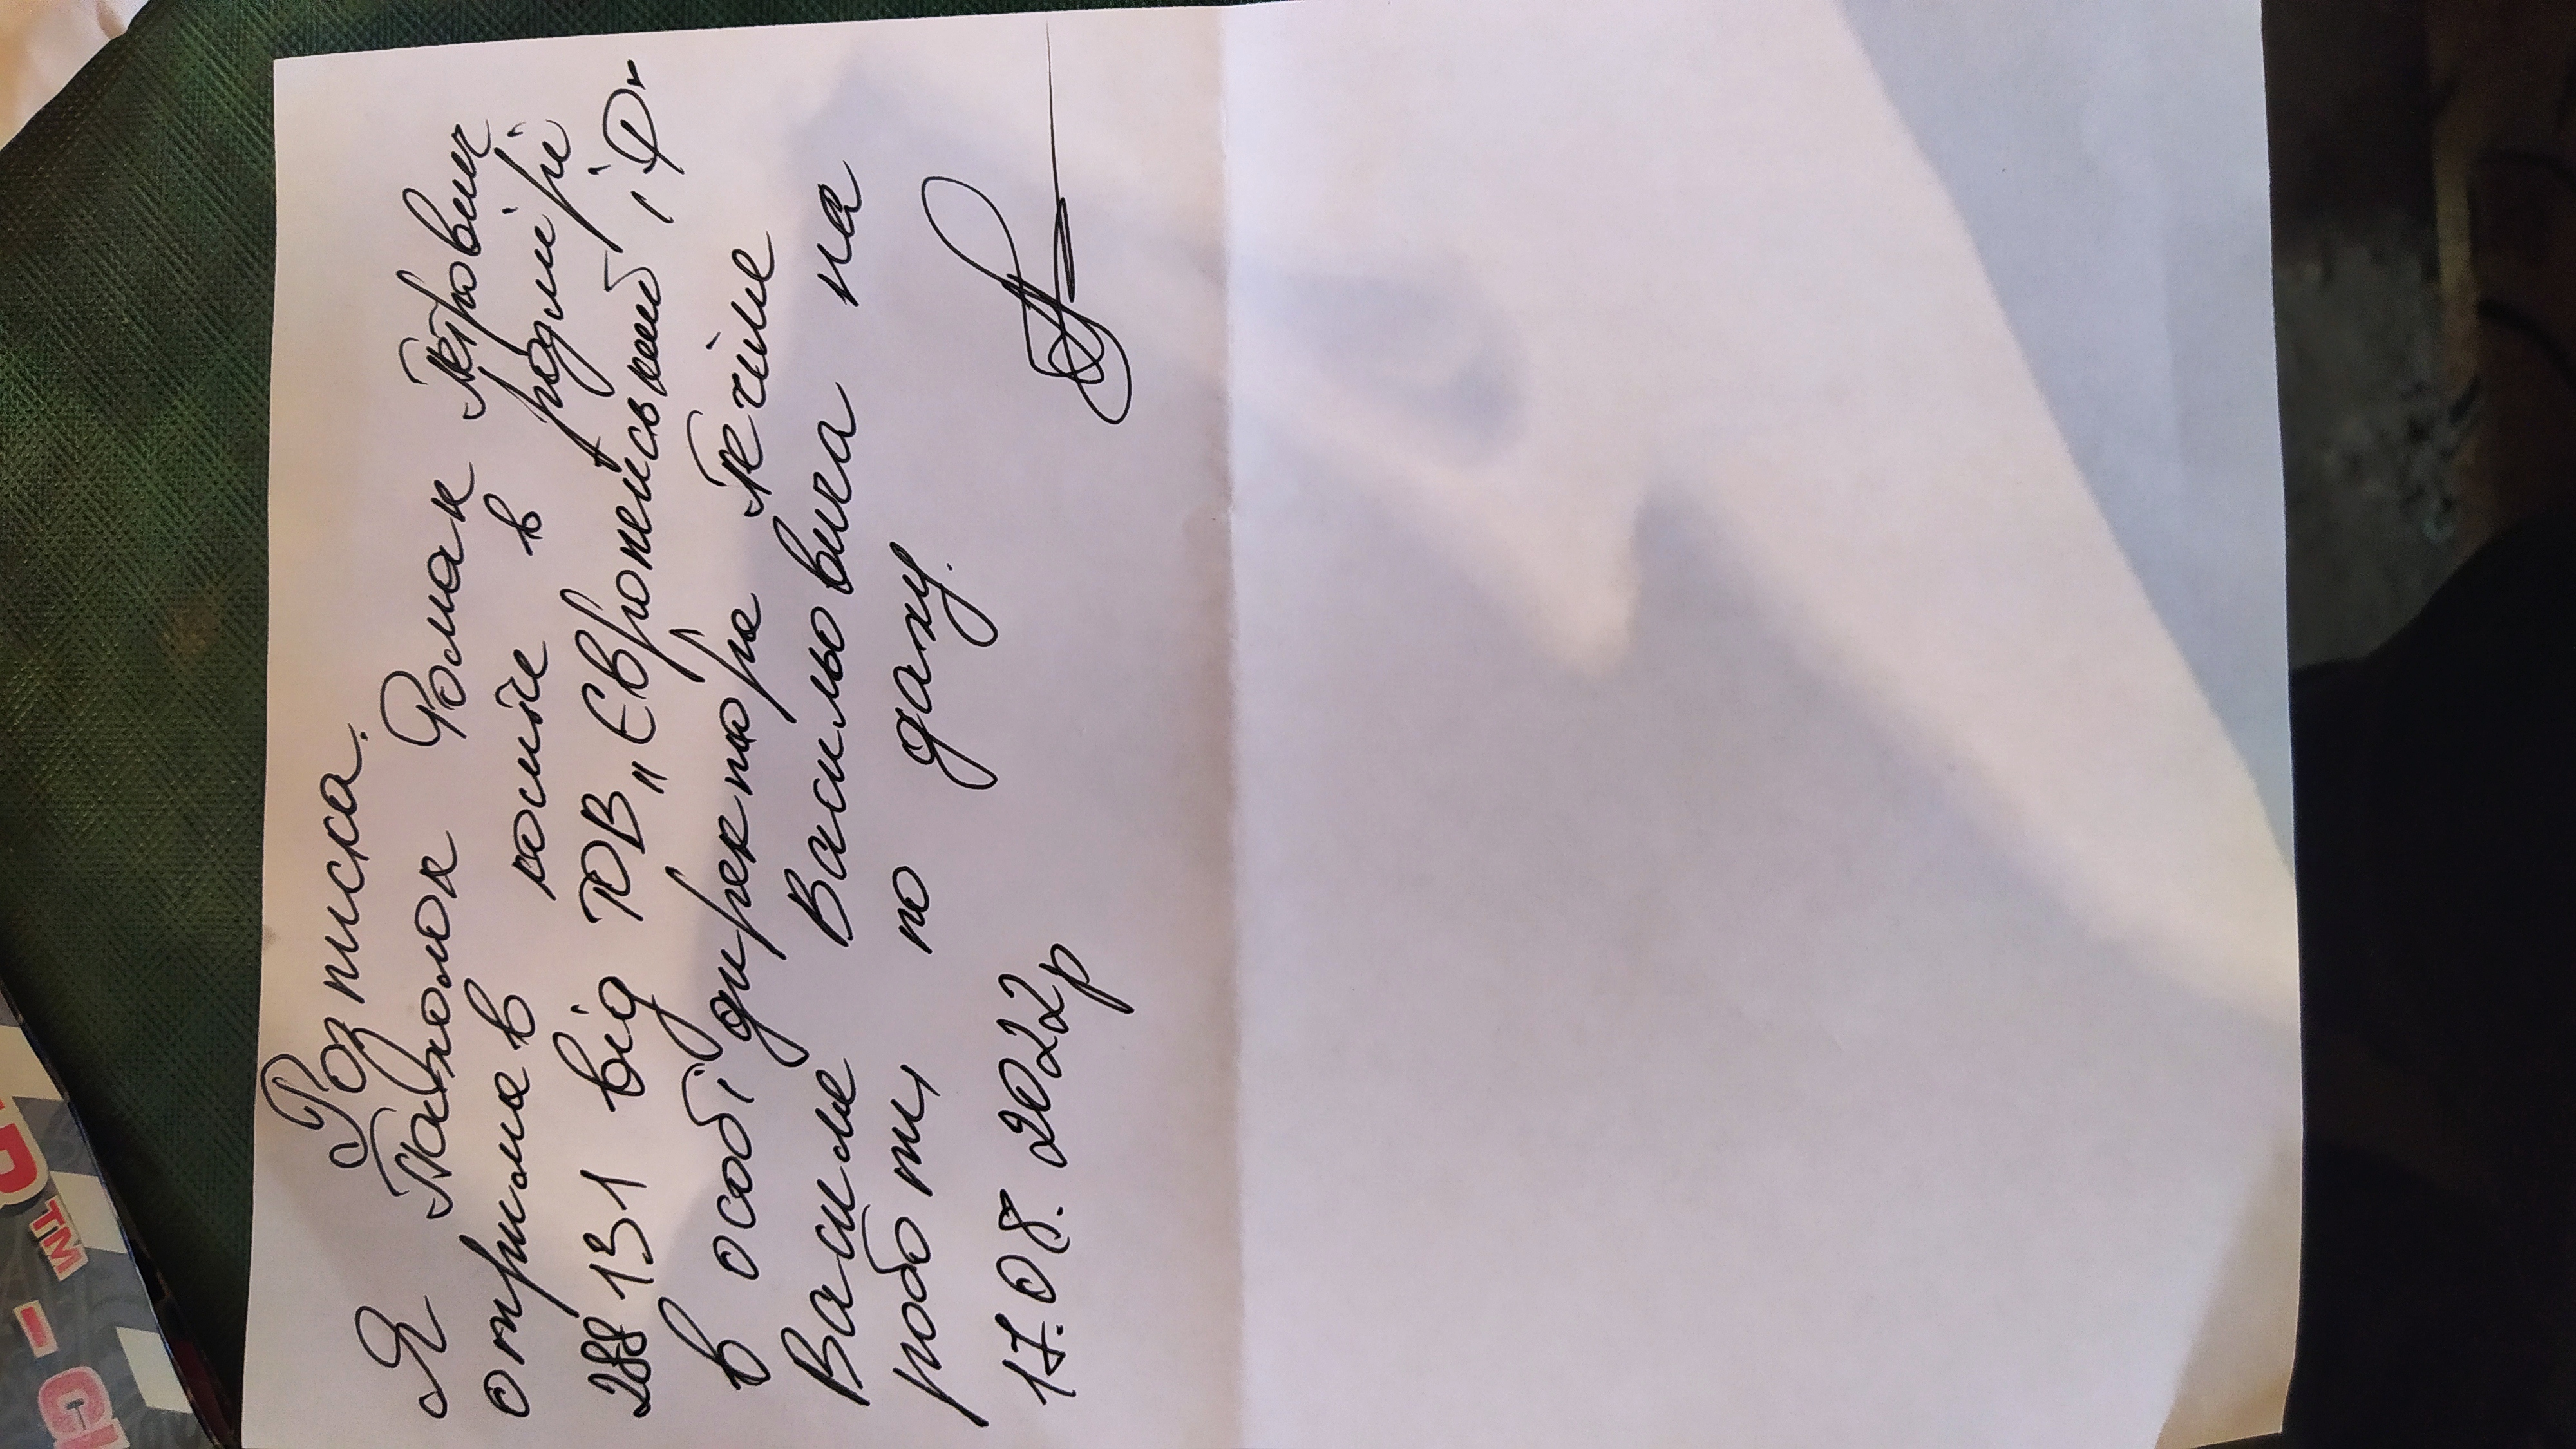 Розписка.
Я Пахолок Роман Петрович
отримав кошти в розмірі
288131 від ТОВ „Європейський і Ф"
в особі директора
Василя Васильовича на
роботи по даху.
17.08.2022р
TM